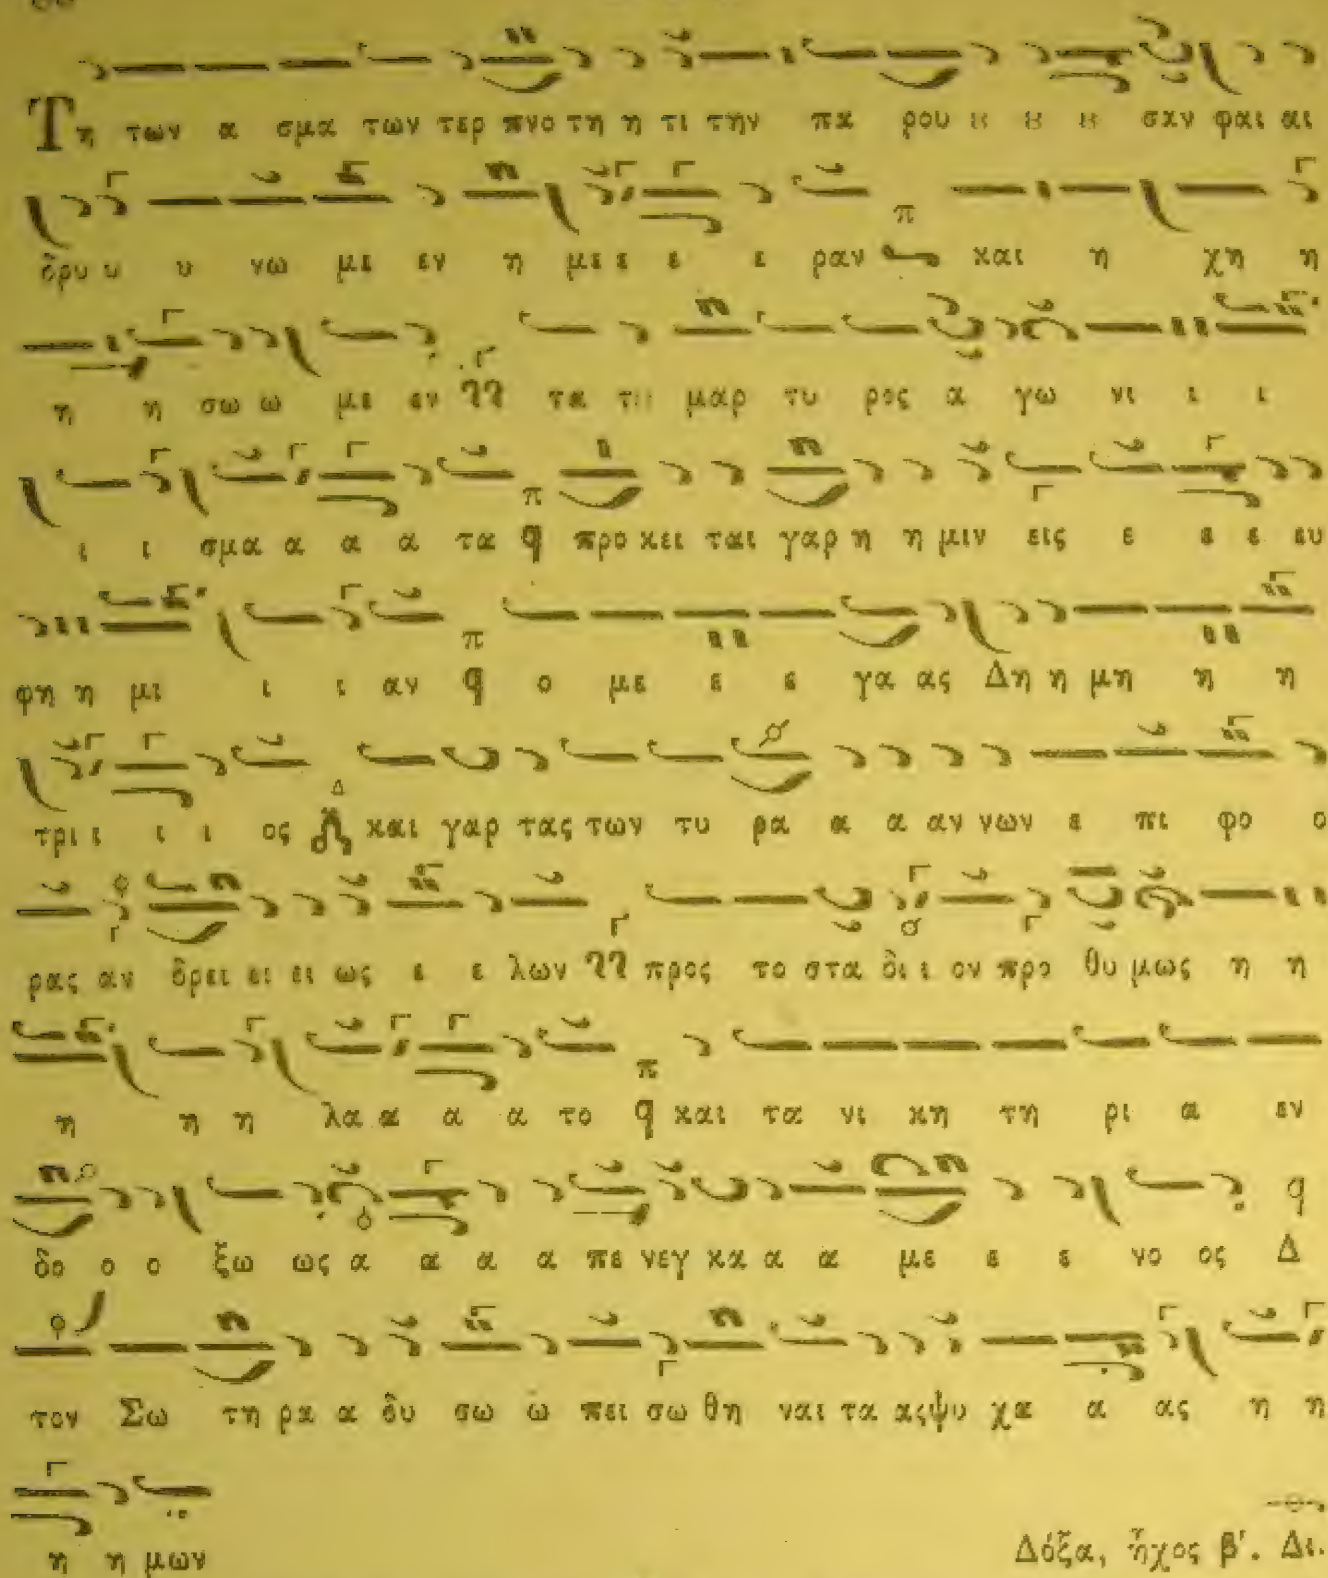 Τη των α σμα των τερ πνο τη η τι την πα ρου ȣ ȣ ȣ σαν φαι αι
δρυ υ υ νω με εν η με ε ε ε ραν και η χη η
η η σω ω με εν τα τȣ μαρ τυ ρος α γω νι ι ι
ι ι σμα α α α τα π q προ κει ται γαρ η η μιν εις ε ε ε ευ
φη η μι ι ι αν π q ο με ε ε γα ας Δη η μη η η
τρι ι ι ι ος Δ και γαρ τας των τυ ρα α α αν νων ε πι φο ο
ρας αν δρει ει ει ως ε ε λων προς το στα δι ι ον προ θυ μως η η
η η η λα α α α το π q και τα νι κη τη ρι α εν
δο ο ο ξω ως α α α α πε νεγ κα α α με ε ε νο ος Δ
τον Σω τη ρα α δυ σω ω πει σω θη ναι τα ας ψυ χα α ας η η
η η μων
Δόξα, ἦχος β΄. Δι.